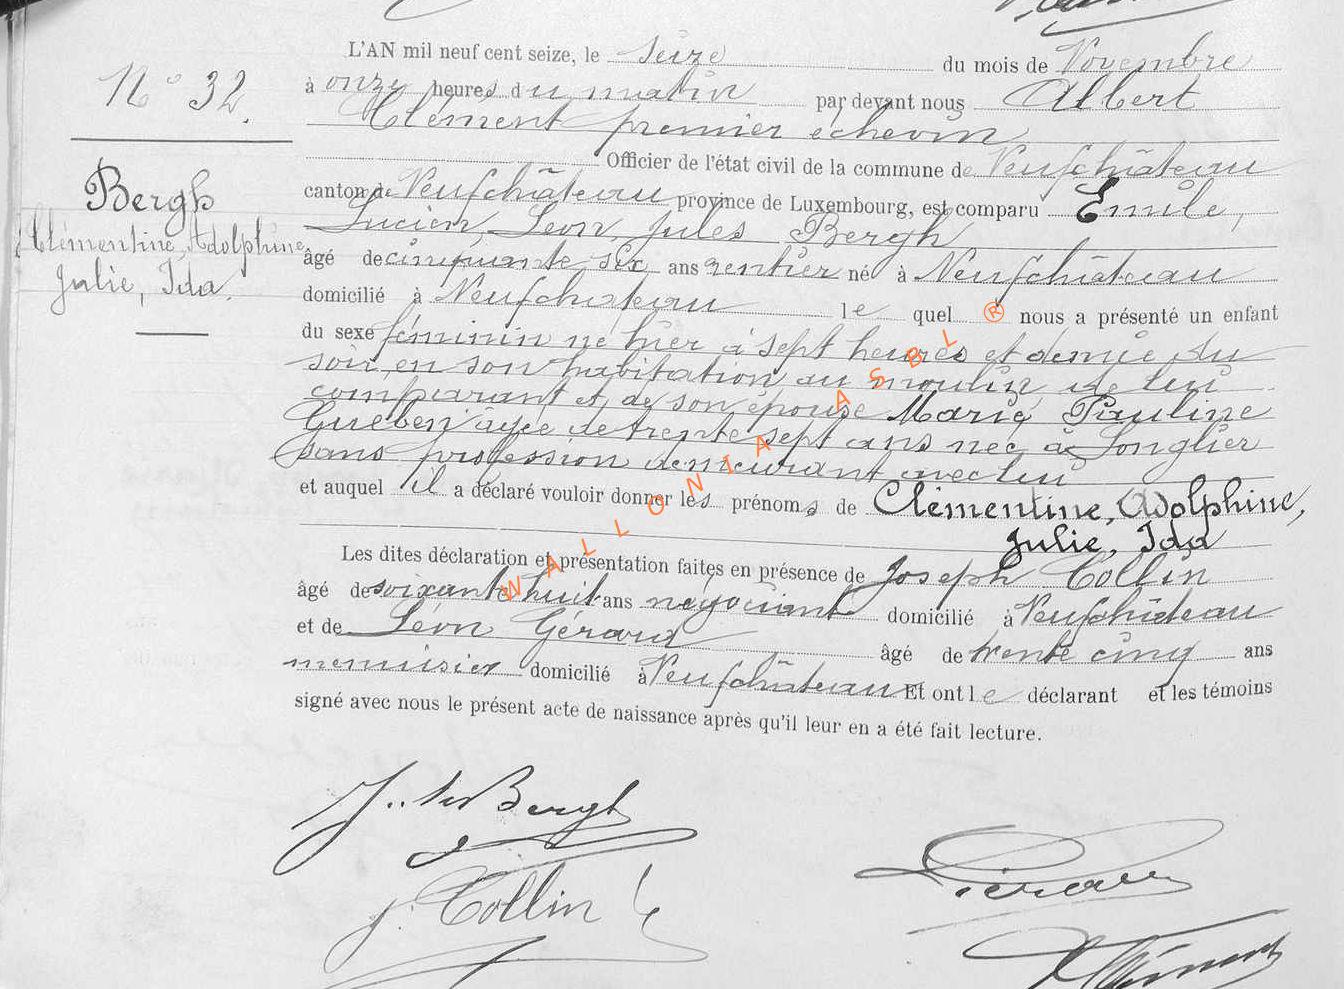 L'AN mil neuf cent seize, le seize du mois de Novembre
N° 32.
à onze heures du matin par devant nous Albert
Clément premier échevin
Officier de l'état civil de la commune de Neufchâteau
Bergh
canton de Neufchâteau province de Luxembourg, est comparu Emile,
Lucien, Léon, Jules Bergh
Clémentine, Adolphine
Julie, Ida.
âgé de cinquante six ans rentier né à Neufchâteau
domicilié à Neufchateau le quel ® nous a présenté un enfant
du sexe féminin né hier à sept heures et demie du
soir, en son habitation au moulin, de lui
comparant et de son épouse Marie Pauline
Gueben âgée de trente sept ans née à Longlier
sans profession demeurant avec lui
et auquel il a déclaré vouloir donner les prénoms de Clémentine, Adolphine,
Julie, Ida
Les dites déclaration et présentation faites en présence de Joseph Collin
âgé de soixante huit ans négociant domicilié à Neufchâteau
et de Léon Gérard âgé de trente cinq ans
menuisier domicilié à Neufchâteau Et ont le déclarant et les témoins
signé avec nous le présent acte de naissance après qu'il leur en a été fait lecture.
WALLONIA ASBL
Bergh
J. Collin
Clément